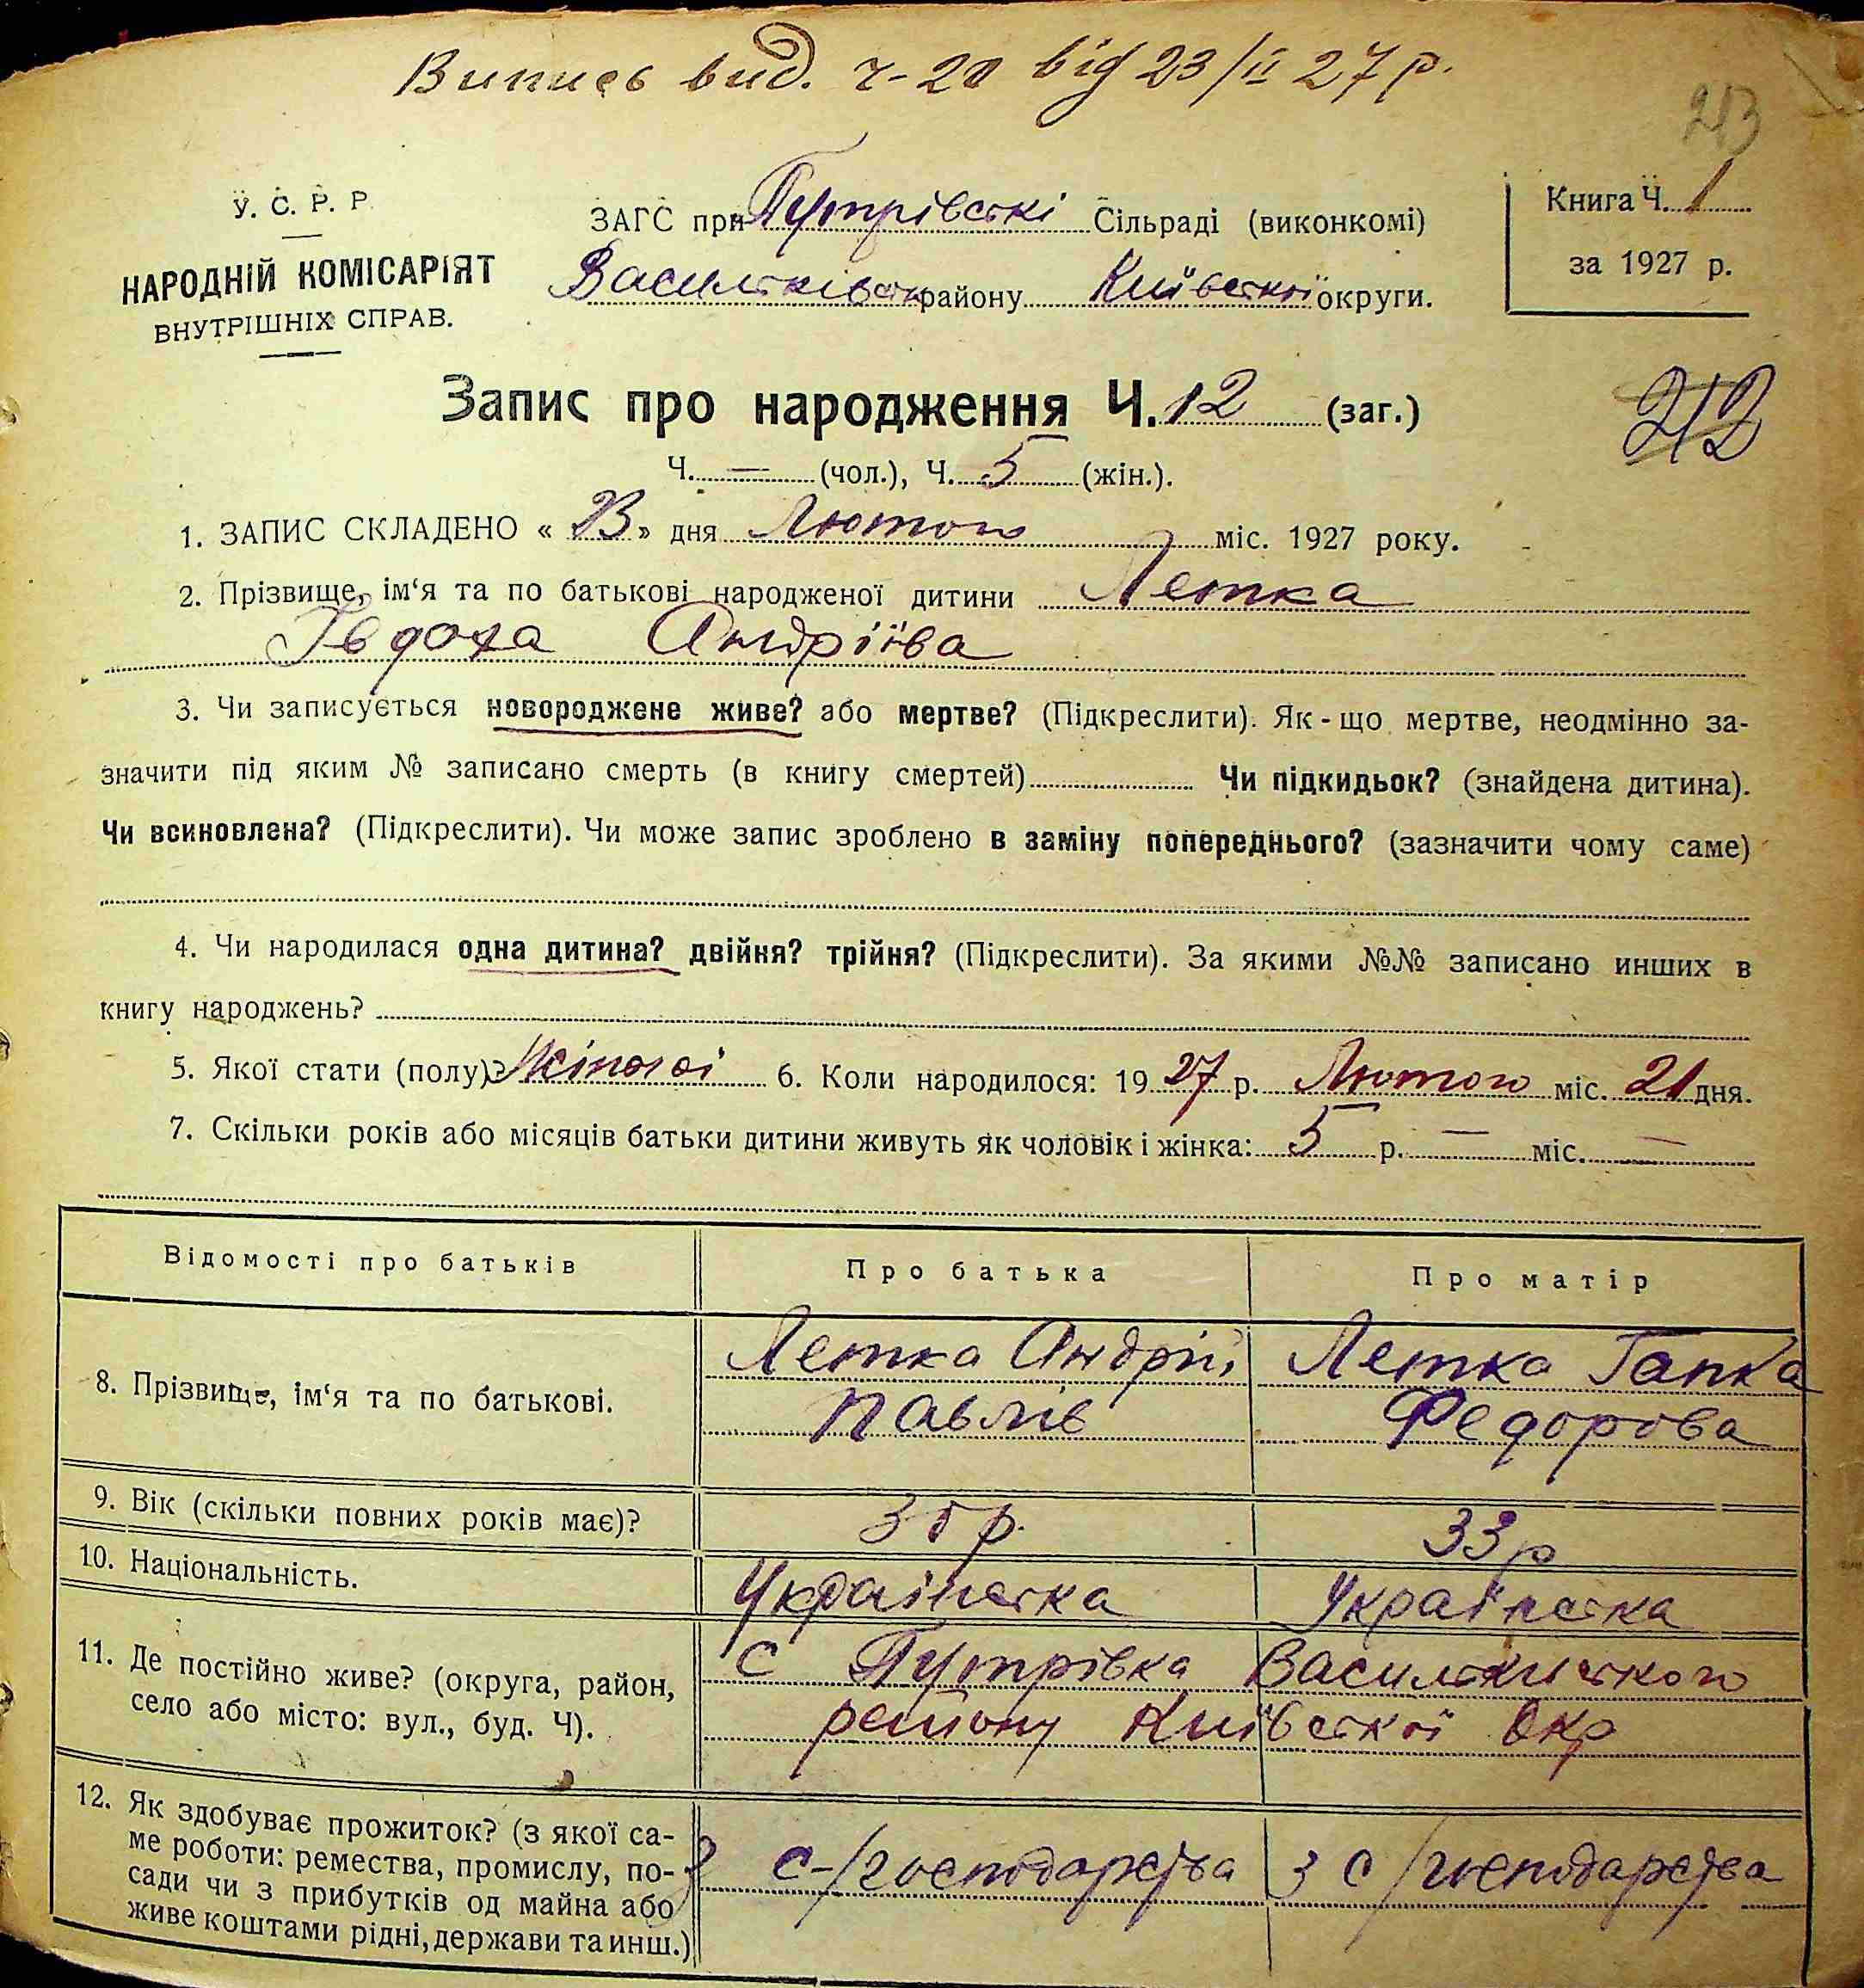 Випись вид. ч-20 від 23/II 27 р.
213
У. С. Р. Р
НАРОДНІЙ КОМІСАРІЯТ
ВНУТРІШНІХ СПРАВ.
ЗАГС при Путрівські Сільраді (виконкомі)
Васильківськ району Київської округи.
Книга Ч. 1
за 1927 р.
Запис про народження Ч. 12 (заг.)
212
Ч. — (чол.), Ч. 5 (жін.).
1. ЗАПИС СКЛАДЕНО « 23 » дня Лютого міс. 1927 року.
2. Прізвище, ім‘я та по батькові народженої дитини Летка
Явдоха Андріїва
3. Чи записується новороджене живе? або мертве? (Підкреслити). Як-що мертве, неодмінно за-
значити під яким № записано смерть (в книгу смертей) Чи підкидьок? (знайдена дитина).
Чи всиновлена? (Підкреслити). Чи може запис зроблено в заміну попереднього? (зазначити чому саме)
4. Чи народилася одна дитина? двійня? трійня? (Підкреслити). За якими №№ записано инших в
книгу народжень?
5. Якої стати (полу)? Жіночої 6. Коли народилося: 1927 р. Лютого міс. 21 дня.
7. Скільки років або місяців батьки дитини живуть як чоловік і жінка: 5 р. — міс. —
Відомості про батьків Про батька Про матір
8. Прізвище, ім‘я та по батькові. Летка Андрій Летка Гапка
Павлів Федорова
9. Вік (скільки повних років має)? 35 р. 33 р
10. Національність. Українська Українська
11. Де постійно живе? (округа, район, с Путрівка Васильківського
село або місто: вул., буд. Ч). району Київської Окр
12. Як здобуває прожиток? (з якої са-
ме роботи: ремества, промислу, по- з с-/господарства з с/господарства
сади чи з прибутків од майна або
живе коштами рідні, держави та инш.)